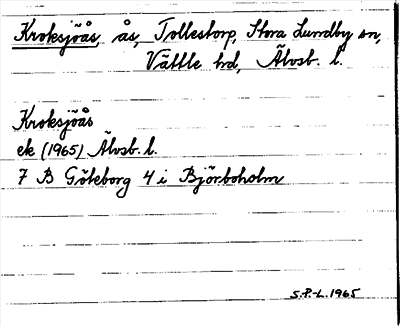 Kroksjöås, ås, Tollestorp, Stora Lundby sn,
Vättle hd, Älvsb. l.
Kroksjöås
ek (1965) Älvsb. l.
7 B Göteborg 4 i Björboholm
S.P.-L. 1965